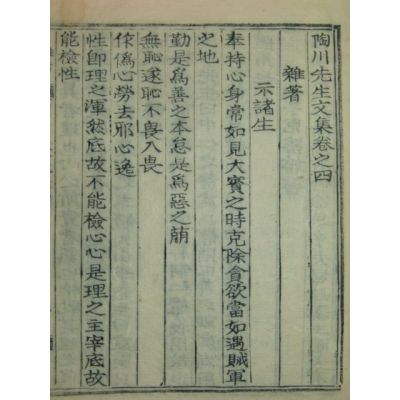 陶川先生文集卷之四
雜著
示諸生
奉持心身常如見大賓之時克除貪欲當如遇賊軍
之地
勤是爲善之本怠是爲惡之萌
無恥遂恥不畏入畏
作僞心勞去邪心逸
性卽理之渾然底故不能檢心心是理之主宰底故
能檢性